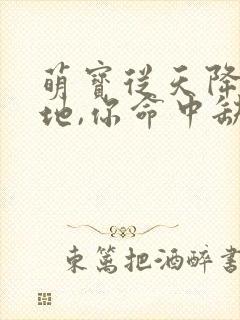 萌寶從天降
地,你命中缺
東篱把酒醉書